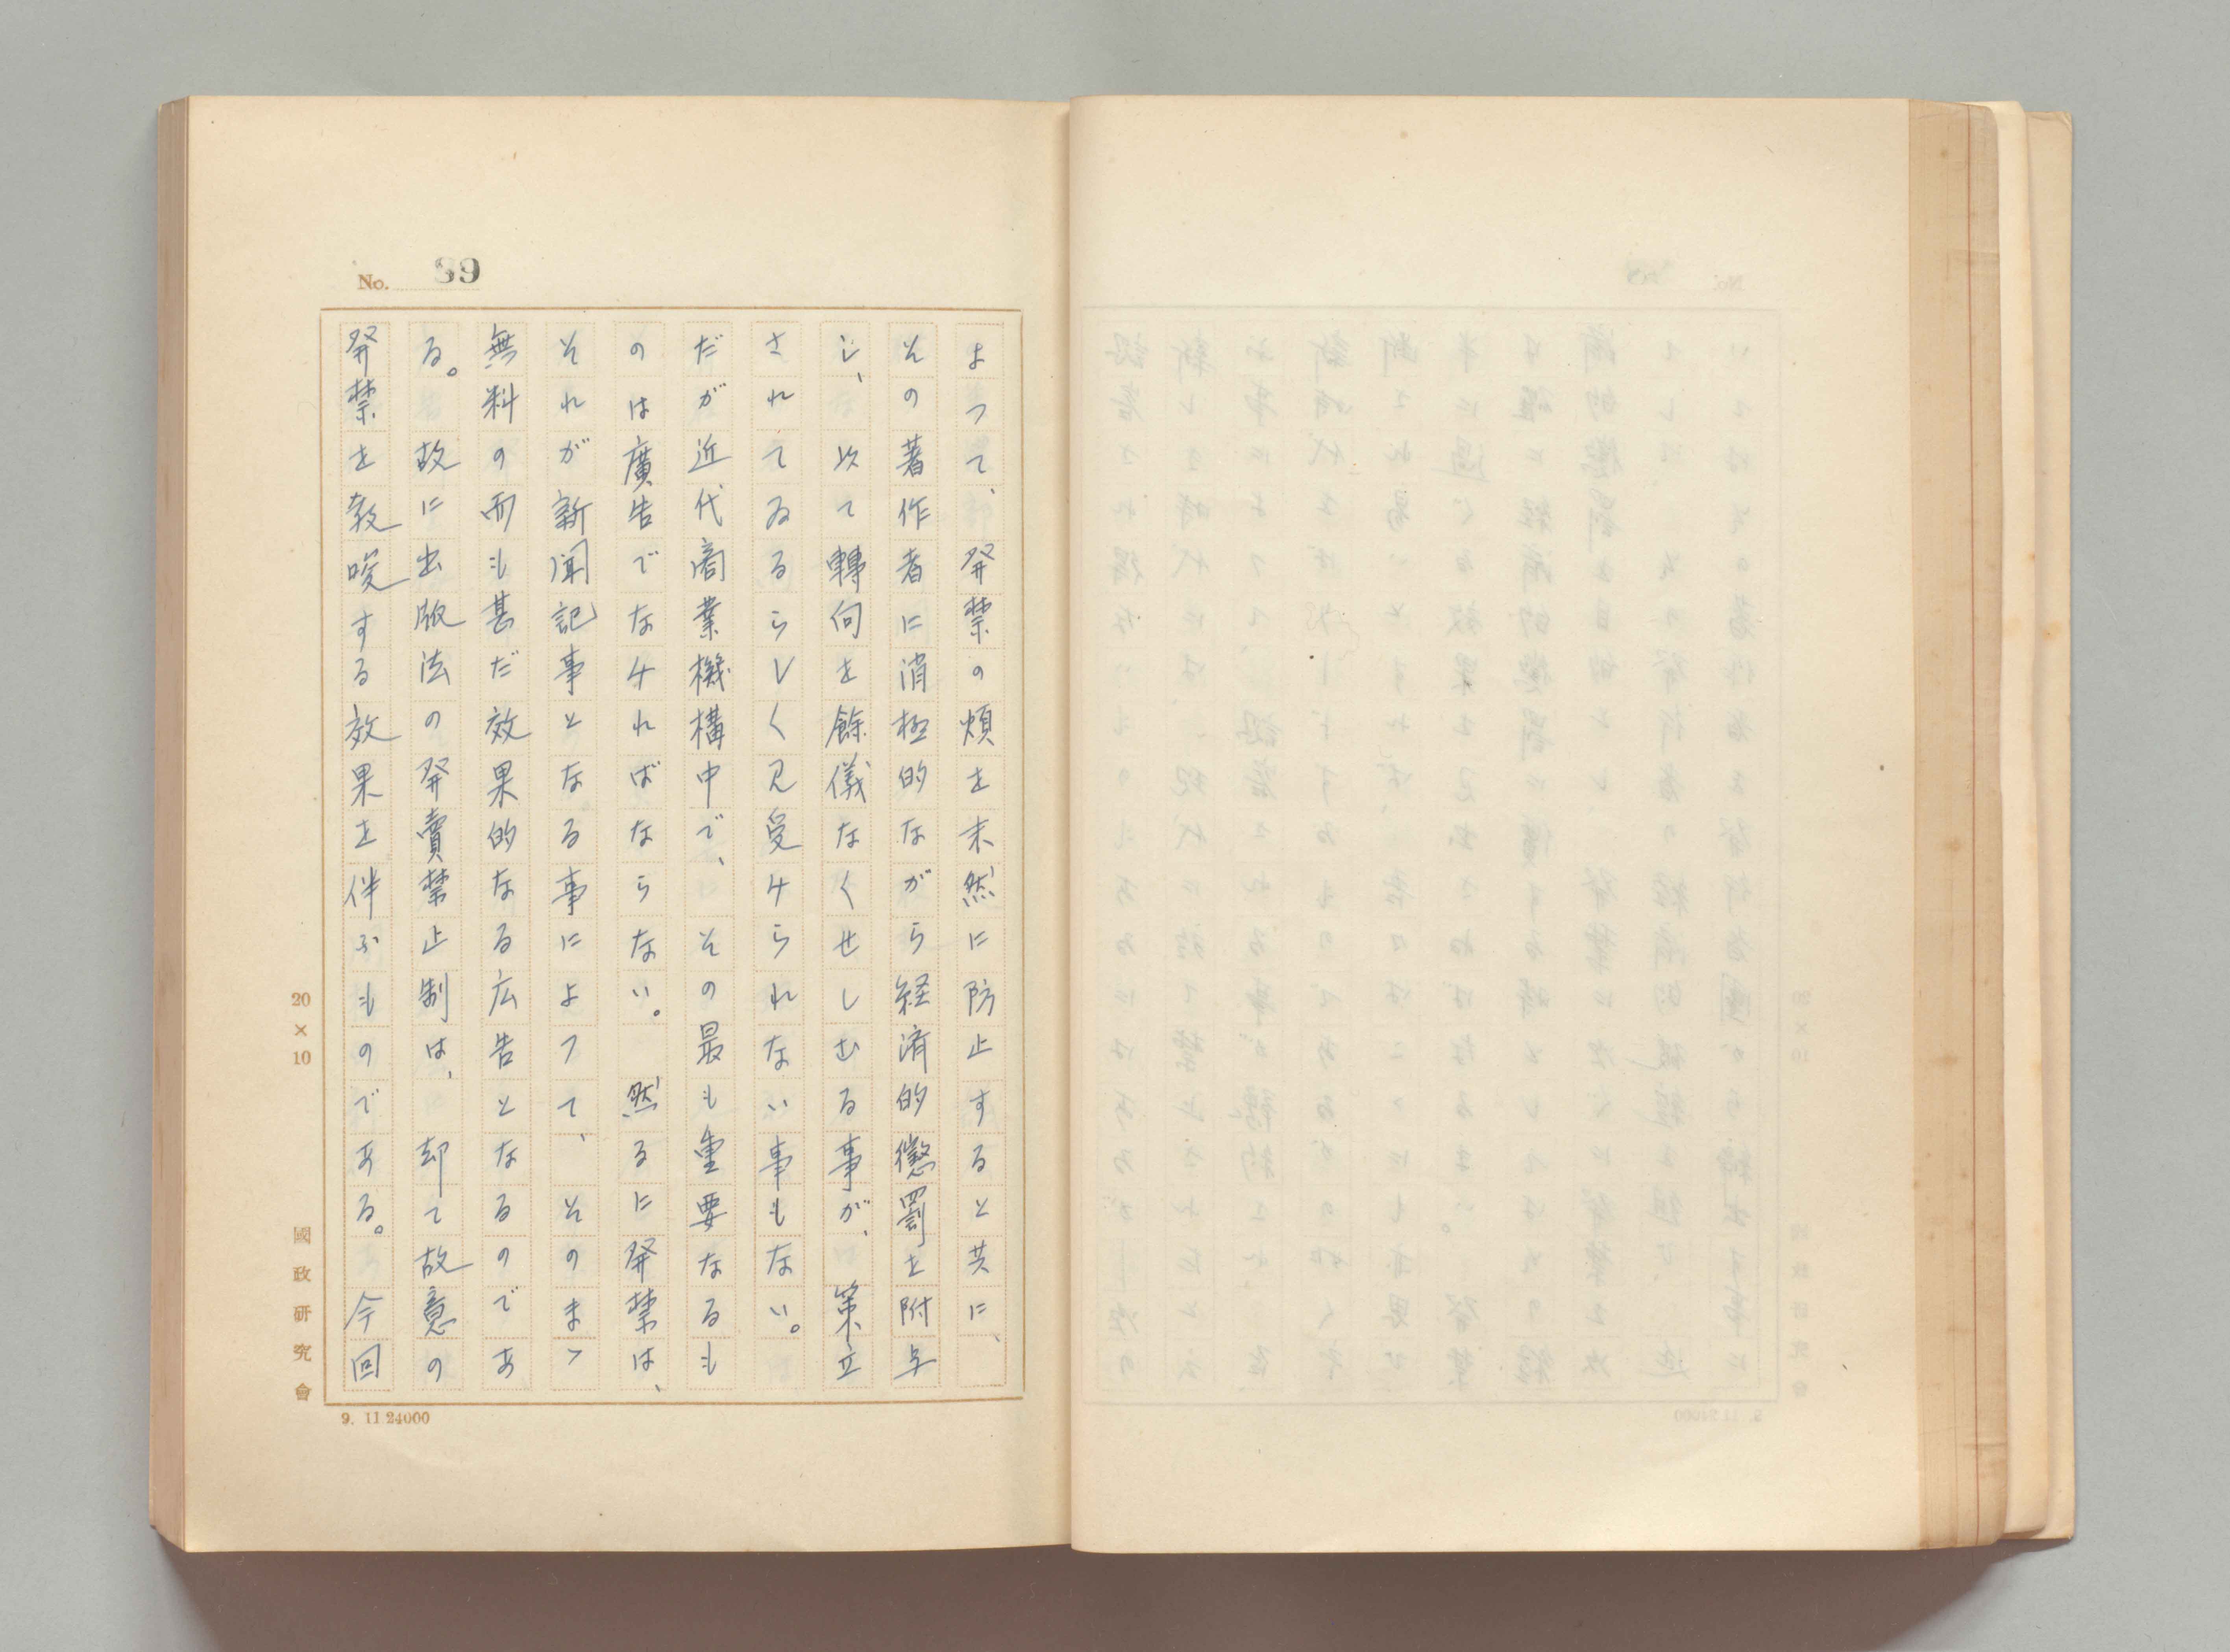 No. 39
よつて、発禁の煩を未然に防止すると共に、
その著作者に消極的ながら経済的懲罰を附与
し、以て轉向を餘儀なくせしむる事が、策立
されてゐるらしく見受けられない事もない。
だが近代商業機構中で、その最も重要なるも
のは廣告でなければならない。然るに発禁は、
それが新聞記事となる事によつて、そのまゝ
無料の而も甚だ效果的なる広告となるのであ
る。故に出版法の発賣禁止制は、却て故意の
発禁を教唆する效果を伴ふものである。今回
20×10
國政研究會
9. 11 24000